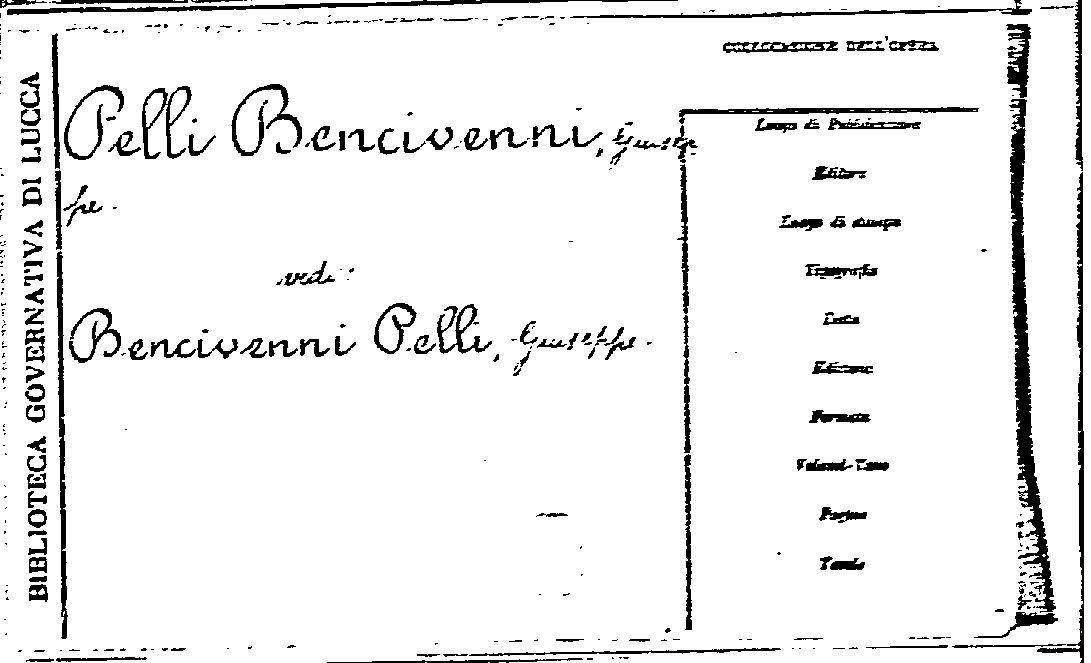 BIBLIOTECA GOVERNATIVA DI LUCCA
COLLOCAZIONE DELL'OPERA
Pelli Bencivenni, Giusep-
pe.
vedi:
Bencivenni Pelli, Giuseppe.
Luogo di Pubblicazione
Editore
Luogo di stampa
Tipografia
Data
Edizione
Formato
Volumi-Tomo
Pagine
Tavole